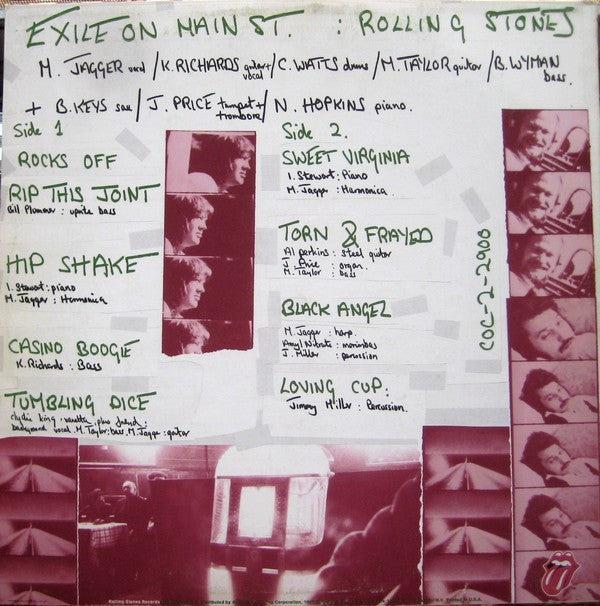 EXILE ON MAIN ST. : ROLLING STONES
M. JAGGER vocal / K. RICHARDS guitar + vocal / C. WATTS drums / M. TAYLOR guitar / B. WYMAN bass.
+ B. KEYS sax / J. PRICE trumpet + trombone / N. HOPKINS piano.
Side 1
ROCKS OFF
RIP THIS JOINT
Bill Plummer : uprite bass
HIP SHAKE
I. Stewart : piano
M. Jagger : Harmonica
CASINO BOOGIE
K. Richards : Bass
TUMBLING DICE
clydie king, vanetta, plus friend :
background vocal. M. Taylor : bass, M. Jagger : guitar
Side 2.
SWEET VIRGINIA
I. Stewart : Piano
M. Jagger : Harmonica.
TORN & FRAYED
Al perkins : steel guitar
J. Price : organ.
M. Taylor : bass
BLACK ANGEL
M. Jagger : harp.
Amyl Nitrate : marimbas
J. Miller : percussion
LOVING CUP :
Jimmy Miller : Percussion.
COC-2-2900
Rolling Stones Records
Distributed by
Corporation,
N.Y. Printed in U.S.A.